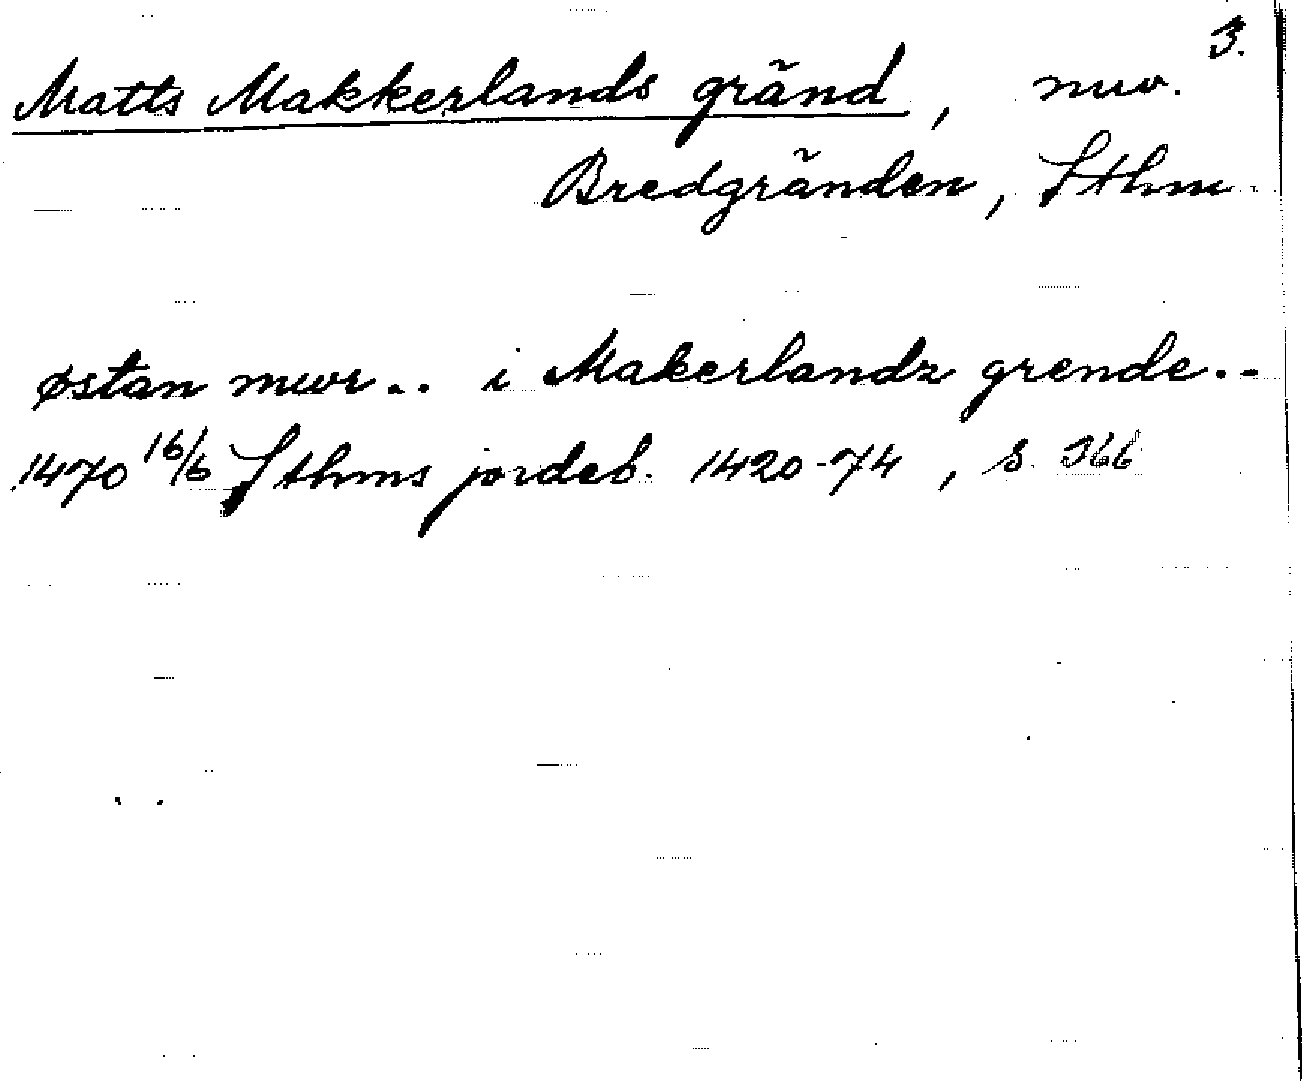 3.
Matts Makkerlands gränd, nuv.
Bredgränden, Sthm
østan mwr.. i Makerlandz grende..
1470 16/6 Sthms jordeb. 1420-74, s. 366